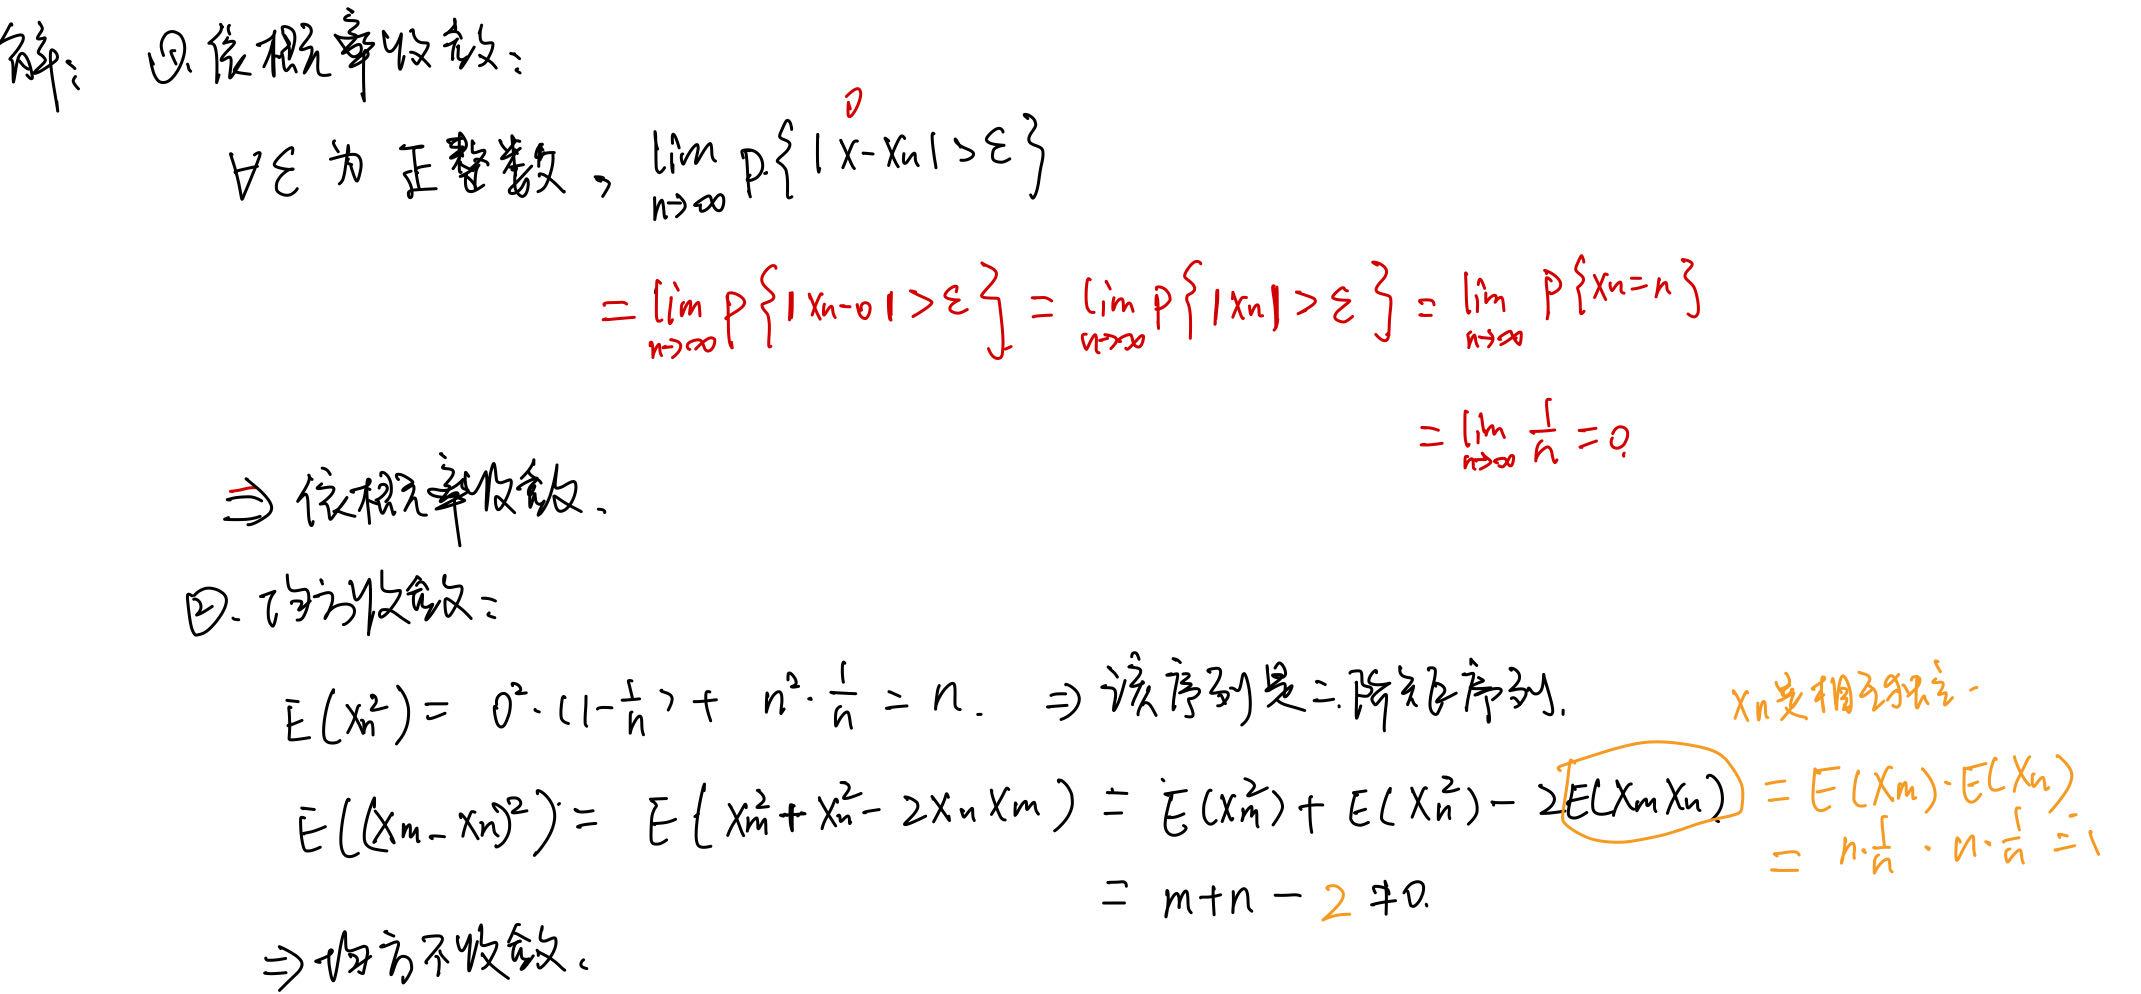 解: ①. 依概率收敛:
∀ε 为 正整数, lim n→∞ P{|X-Xn|>ε}
0
= lim n→∞ P{|Xn-0|>ε} = lim n→∞ P{|Xn|>ε} = lim n→∞ P{Xn=n}
= lim n→∞ 1/n = 0.
⇒ 依概率收敛.
②. 均方收敛:
E(Xn²) = 0²·(1-1/n) + n²·1/n = n. ⇒ 该序列是二阶矩序列.
Xn是相互独立.
E((Xm-Xn)²) = E(Xm²+Xn²-2XnXm) = E(Xm²)+E(Xn²)-2E(XmXn) = E(Xm)·E(Xn)
= n·1/n · n·1/n = 1
= m+n-2≠0.
⇒ 均方不收敛.